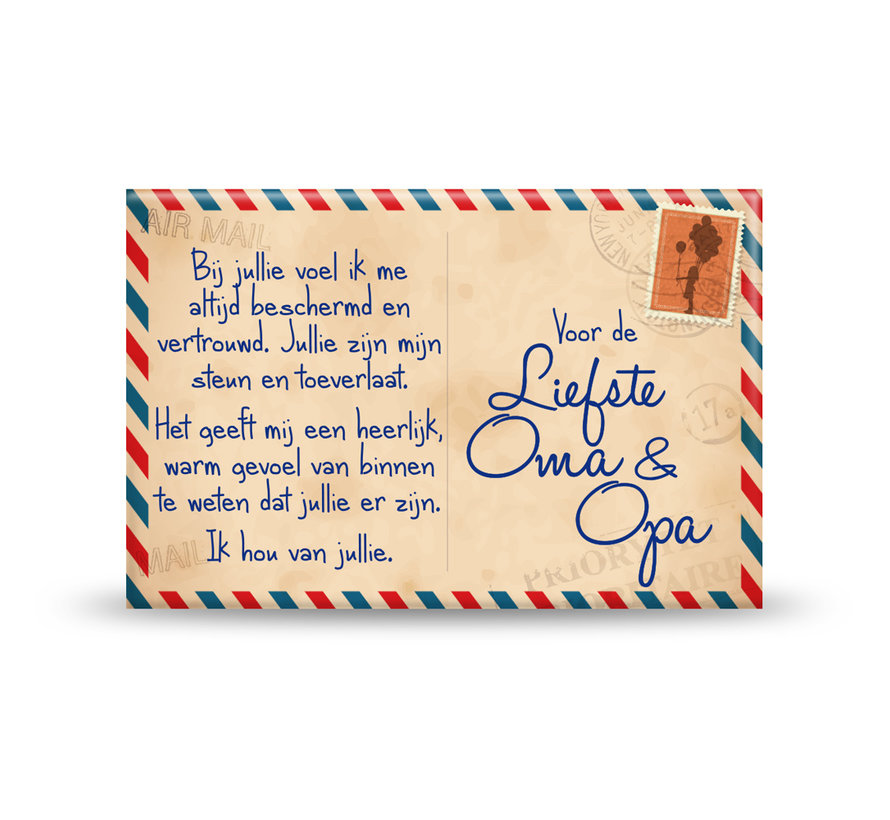 AIR MAIL
Bij jullie voel ik me
altijd beschermd en
vertrouwd. Jullie zijn mijn
steun en toeverlaat.
Het geeft mij een heerlijk,
warm gevoel van binnen
te weten dat jullie er zijn.
Ik hou van jullie.
MAIL
Voor de
Liefste
Oma &
Opa
NEW YORK
JUN
17a